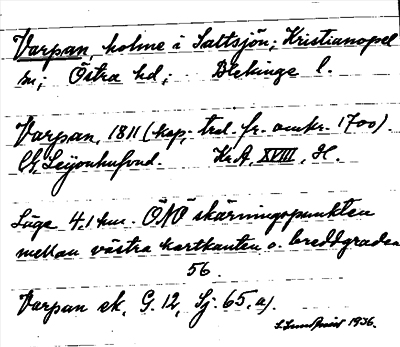 Varpan, holme i Saltsjön; Kristianopel
sn; Östra hd; Blekinge l.
Varpan, 1811 (kop. trol. fr. omkr. 1700).
G. Leijonhufvud. Kr.A, XVIII, H.
Läge 4,1 km. ÖNÖ skärningspunkten
mellan västra kartkanten o. breddgraden
56.
Varpan ek. G. 12, Sj. 65, a).
1936.